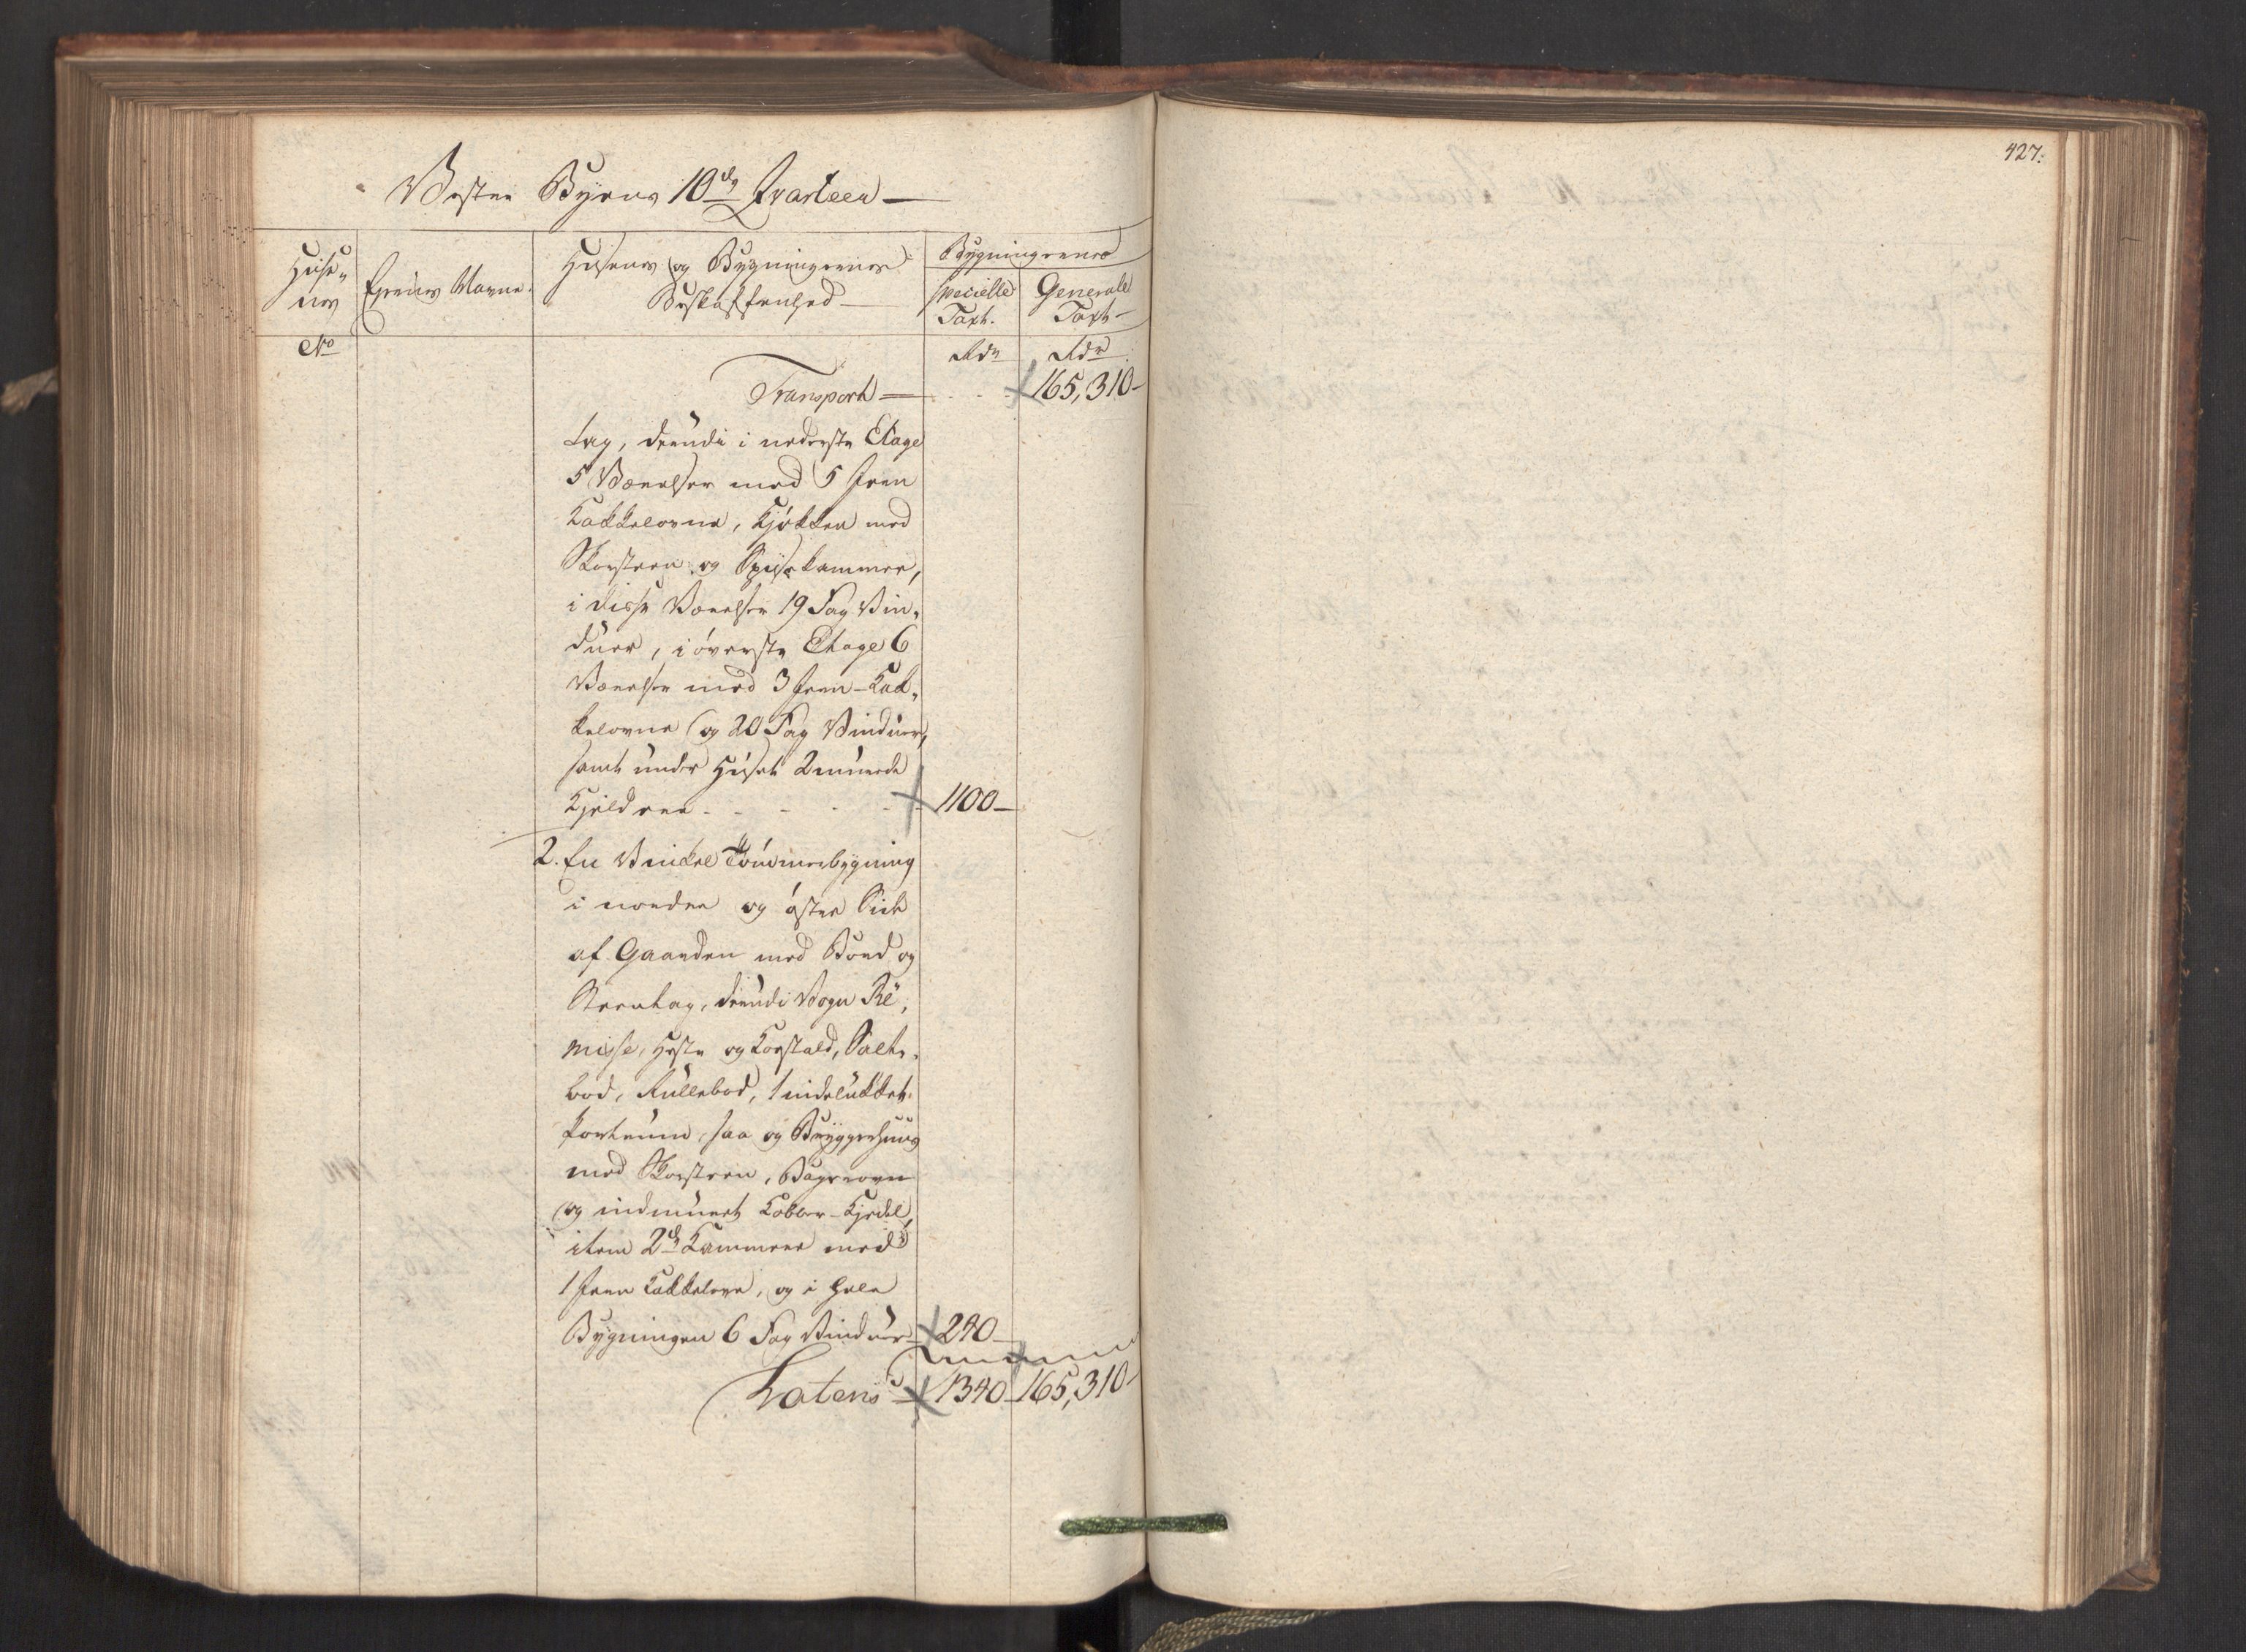 427.
Vester Byens 10de Qvarteer
Huse-
nes
Eyernes Navne.
Husenes og Bygningernes
Beskaffenhed
Bygningernes
specielle
Taxt.
Generale
Taxt
No
Rdr
Rdr
Transport
165,310
tag, derudi i nederste Etage
5 Værelser med 5 Jern
Kakkelovne, Kjøkken med
Skorsteen og Spiisekammer,
i disse Værelser 19 Fag Vin-
duer, i øverste Etage 6
Værelser med 3 Jern-Kak-
kelovne og 20 Fag Vinduer,
samt under Huset 2 murede
Kjeldere
1100
2. En Vinckel Tømmerbygning
i norder og øster Side
af Gaarden med Bord og
Steentag, derudi Vogn Re-
misse, Heste og Kostald, Salte-
bod, Rullebod, 1 indelukket
Portrum, saa og Bryggerhuus
med Skorsteen, Bagerovn
og indmuret Kobber-Kjedel,
item 2de Kammere med
1 Jern Kakkelovn, og i hele
Bygningen 6 Fag Vinduer
240
Lateris
1340
165,310